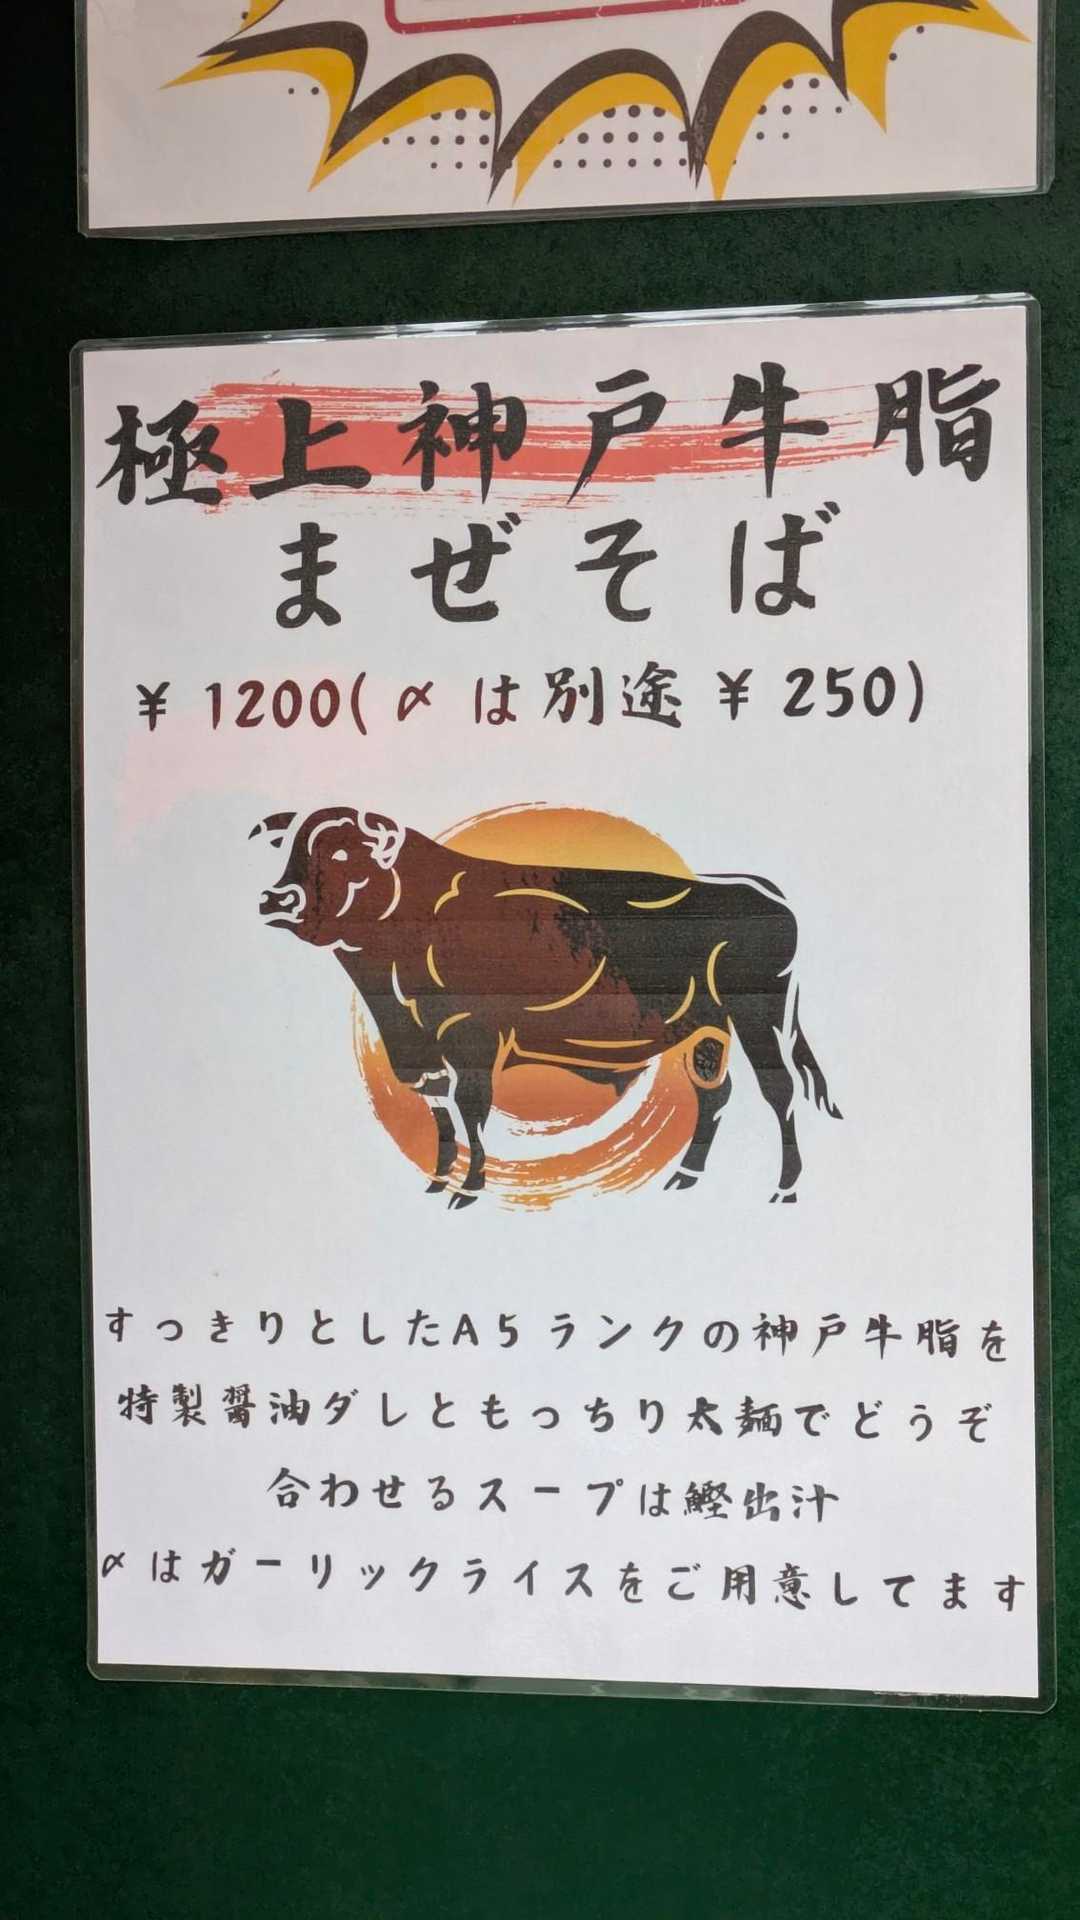 極上神戸牛脂
まぜそば
¥1200(〆は別途¥250)
すっきりとしたA5ランクの神戸牛脂を
特製醤油ダレともっちり太麺でどうぞ
合わせるスープは鰹出汁
〆はガーリックライスをご用意してます